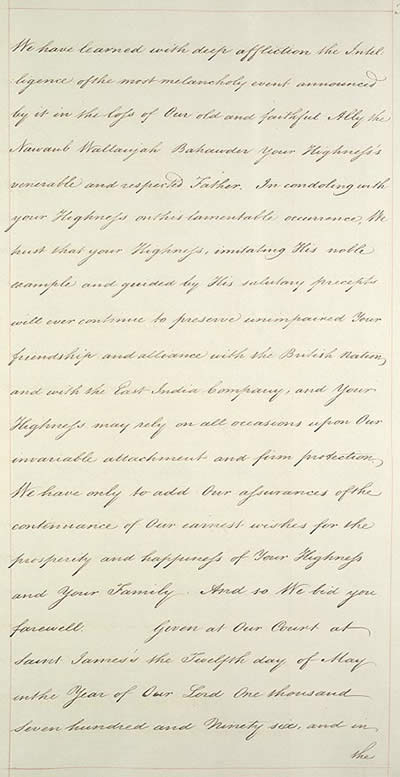 We have learned with deep affliction the Intel
ligence of the most melancholy event announced
by it in the loſs of Our old and faithful Ally the
Nawaub Wallaujah Bahawder Your Highneſs's
venerable and respected Father. In condoling with
your Highneſs on this lamentable occurrence, We
trust that your Highneſs, imitating His noble
example and guided by His salutary precepts
will ever continue to preserve unimpaired Your
friendship and alliance with the British Nation,
and with the East India Company, and Your
Highneſs may rely on all occasions upon Our
invariable attachment and firm protection.
We have only to add Our aſsurances of the
continuance of Our earnest wishes for the
prosperity and happineſs of Your Highneſs
and Your Family. And so We bid you
farewell. Given at Our Court at
Saint James's the Twelfth day of May
in the Year of Our Lord One thousand
Seven hundred and Ninety six, and in
the